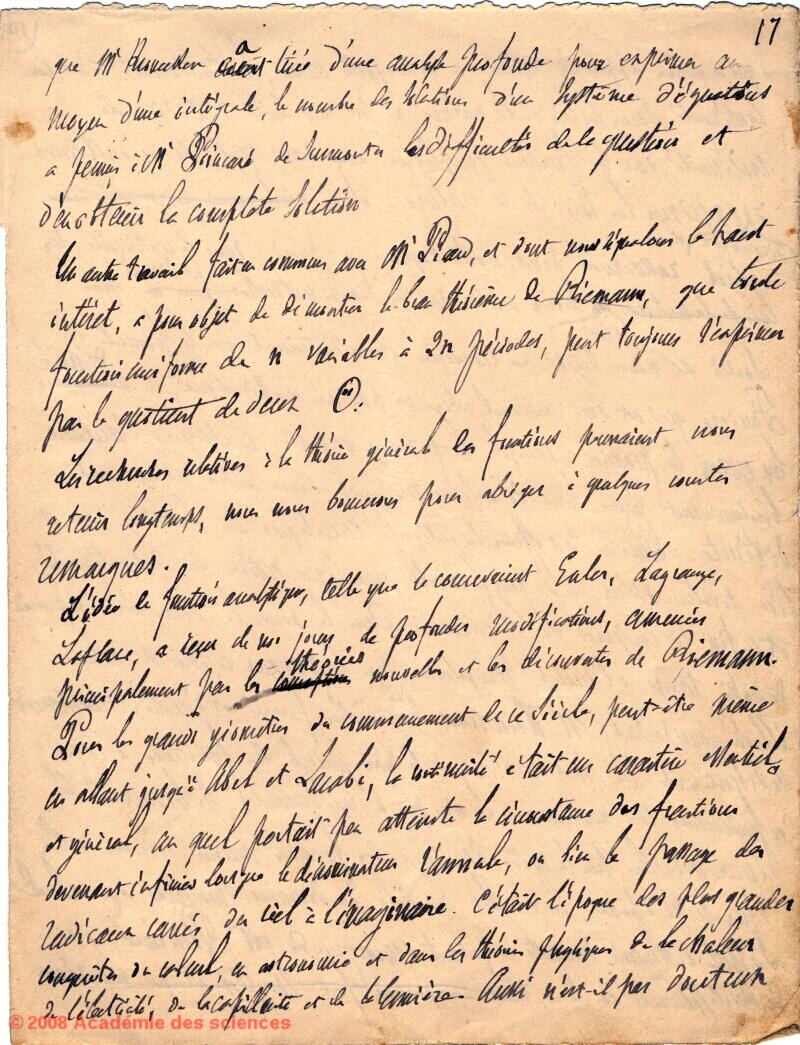 17
que Mr Kronecker a tirée d'une analyse profonde pour exprimer au
moyen d'une intégrale, le nombre des solutions d'un système d'équations
a permis à Mr Poincaré de surmonter les difficultés de la question et
d'en obtenir la complète solution
Un autre travail fait en commun avec Mr Picard, et dont nous signalons le haut
intérêt, a pour objet de démontrer le beau théorème de Riemann, que toute
fonction uniforme de n variables à 2n périodes, peut toujours s'exprimer
par le quotient de deux Θ.
Les recherches relatives à la théorie générale des fonctions pourraient nous
retenir longtemps, nous nous bornerons pour abréger à quelques courtes
remarques.
L'idée de fonction analytique, telle que le concevaient Euler, Lagrange,
Laplace, a reçu de nos jours de profondes modifications, amenées
théories
principalement par les conceptions nouvelles et les découvertes de Riemann.
Pour les grands géomètres du commencement de ce siècle, peut-être même
en allant jusqu'à Abel et Jacobi, la continuité était un caractère essentiel
et général, au quel portait peu atteinte la circonstance des fractions
devenant infinies lorsque le dénominateur s'annule, ou bien le passage des
radicaux carrés du réel à l'imaginaire. C'était l'époque des plus grandes
conquêtes du calcul, en astronomie et dans les théories physiques de la chaleur
de l'électricité, de la capillarité et de la lumière. Aussi n'est-il pas douteux
© 2008 Académie des sciences